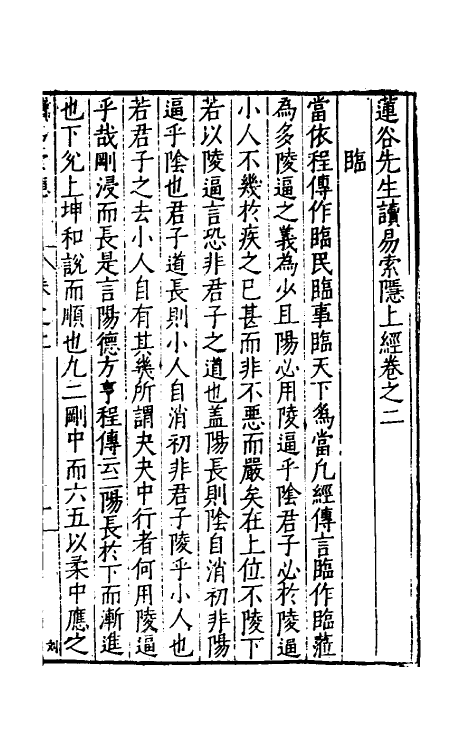 蓮谷先生讀易索隱上經卷之二
臨
當依程傳作臨民臨事臨天下為當凡經傳言臨作臨蒞
為多陵逼之義為少且陽必用陵逼乎陰君子必於陵逼
小人不幾於疾之已甚而非不悪而嚴矣在上位不陵下
若以陵逼言恐非君子之道也盖陽長則陰自消初非陽
逼乎陰也君子道長則小人自消初非君子陵乎小人也
若君子之去小人自有其幾所謂夬夬中行者何用陵逼
乎哉剛浸而長是言陽德方亨程傳云二陽長於下而漸進
也下兌上坤和說而順也九二剛中而六五以柔中應之